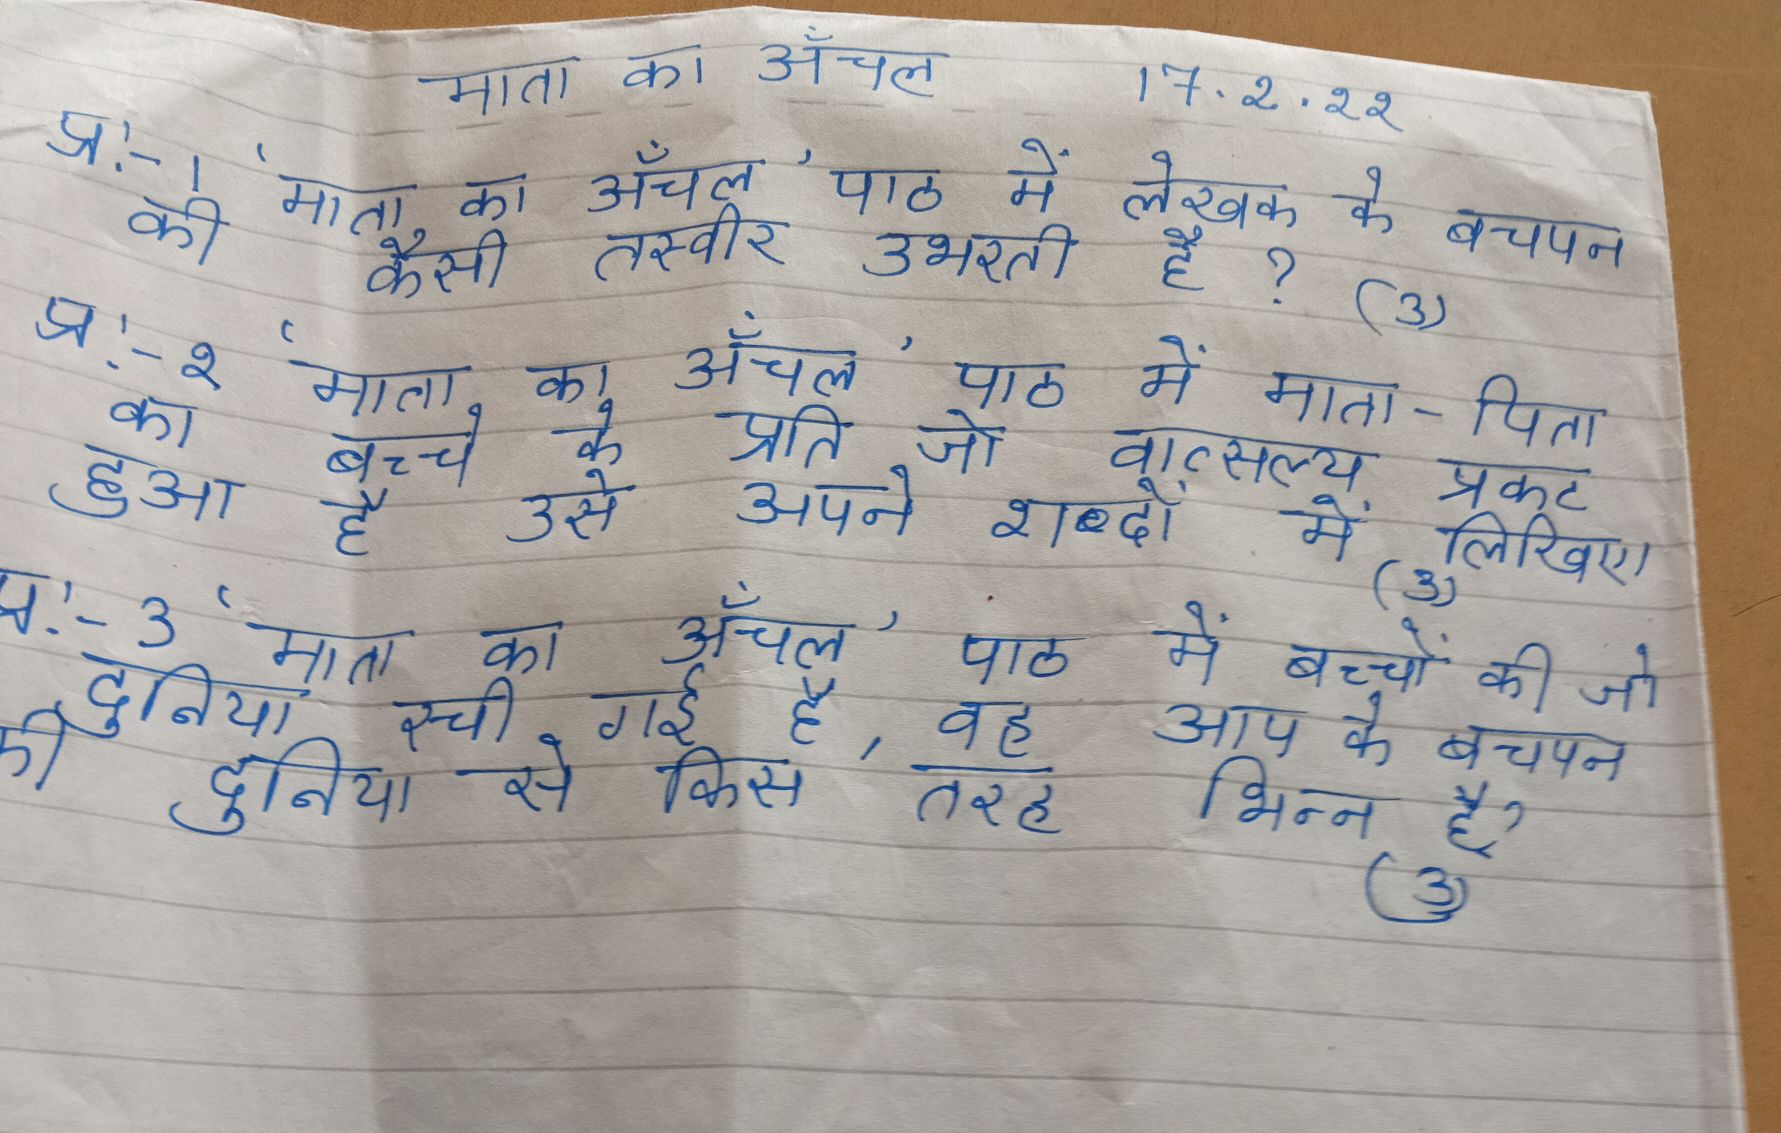 माता का अँचल 17.2.22
प्र:-1 'माता का अँचल' पाठ में लेखक के बचपन
की कैसी तस्वीर उभरती है? (3)
प्र:-2 'माता का अँचल' पाठ में माता-पिता
का बच्चे के प्रति जो वात्सल्य प्रकट
हुआ है उसे अपने शब्दों में लिखिए।
(3)
प्र:-3 'माता का अँचल' पाठ में बच्चों की जो
दुनिया रची गई है, वह आप के बचपन
की दुनिया से किस तरह भिन्न है?
(3)